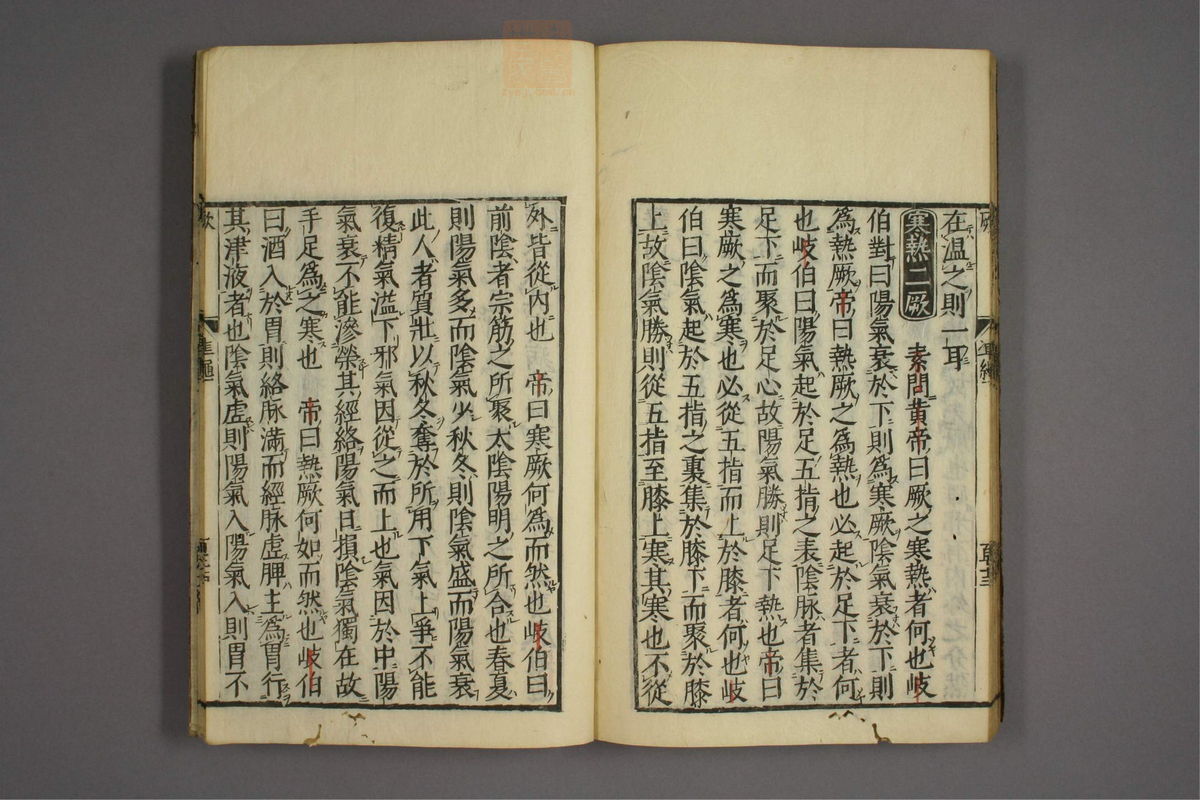 在温之則一耳
寒熱二厥
素問黄帝曰厥之寒熱者何也岐
伯對曰陽氣衰於下則爲寒厥陰氣衰於下則
爲熱厥帝曰熱厥之爲熱也必起於足下者何
也岐伯曰陽氣起於足五指之表陰脉者集於
足下而聚於足心故陽氣勝則足下熱也帝曰
寒厥之爲寒也必從五指而上於膝者何也岐
伯曰陰氣起於五指之裏集於膝下而聚於膝
上故陰氣勝則從五指至膝上寒其寒也不從
外皆從内也 帝曰寒厥何爲而然也岐伯曰
前陰者宗筋之所聚太陰陽明之所合也春夏
則陽氣多而陰氣少秋冬則陰氣盛而陽氣衰
此人者質壯以秋冬奪於所用下氣上爭不能
復精氣溢下邪氣因從之而上也氣因於中陽
氣衰不能滲榮其經絡陽氣日損陰氣獨在故
手足爲之寒也 帝曰熱厥何如而然也岐伯
曰酒入於胃則絡脉滿而經脉虚脾主爲胃行
其津液者也陰氣虚則陽氣入陽氣入則胃不